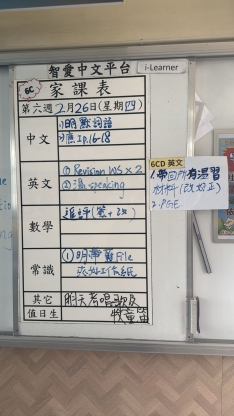 智愛中文平台
i-Learner
6C
家課表
第六週2月26日(星期四)
中文
①明默詞語
②應1p.16-18
英文
① Revision WS x 2
② 溫speaking
數學
常識
① 明帶File
其它
明天考唱歌及
牧童笛
值日生
6CD 英文
1. 帶回所有溫習
材料(改好正)
2. PGE